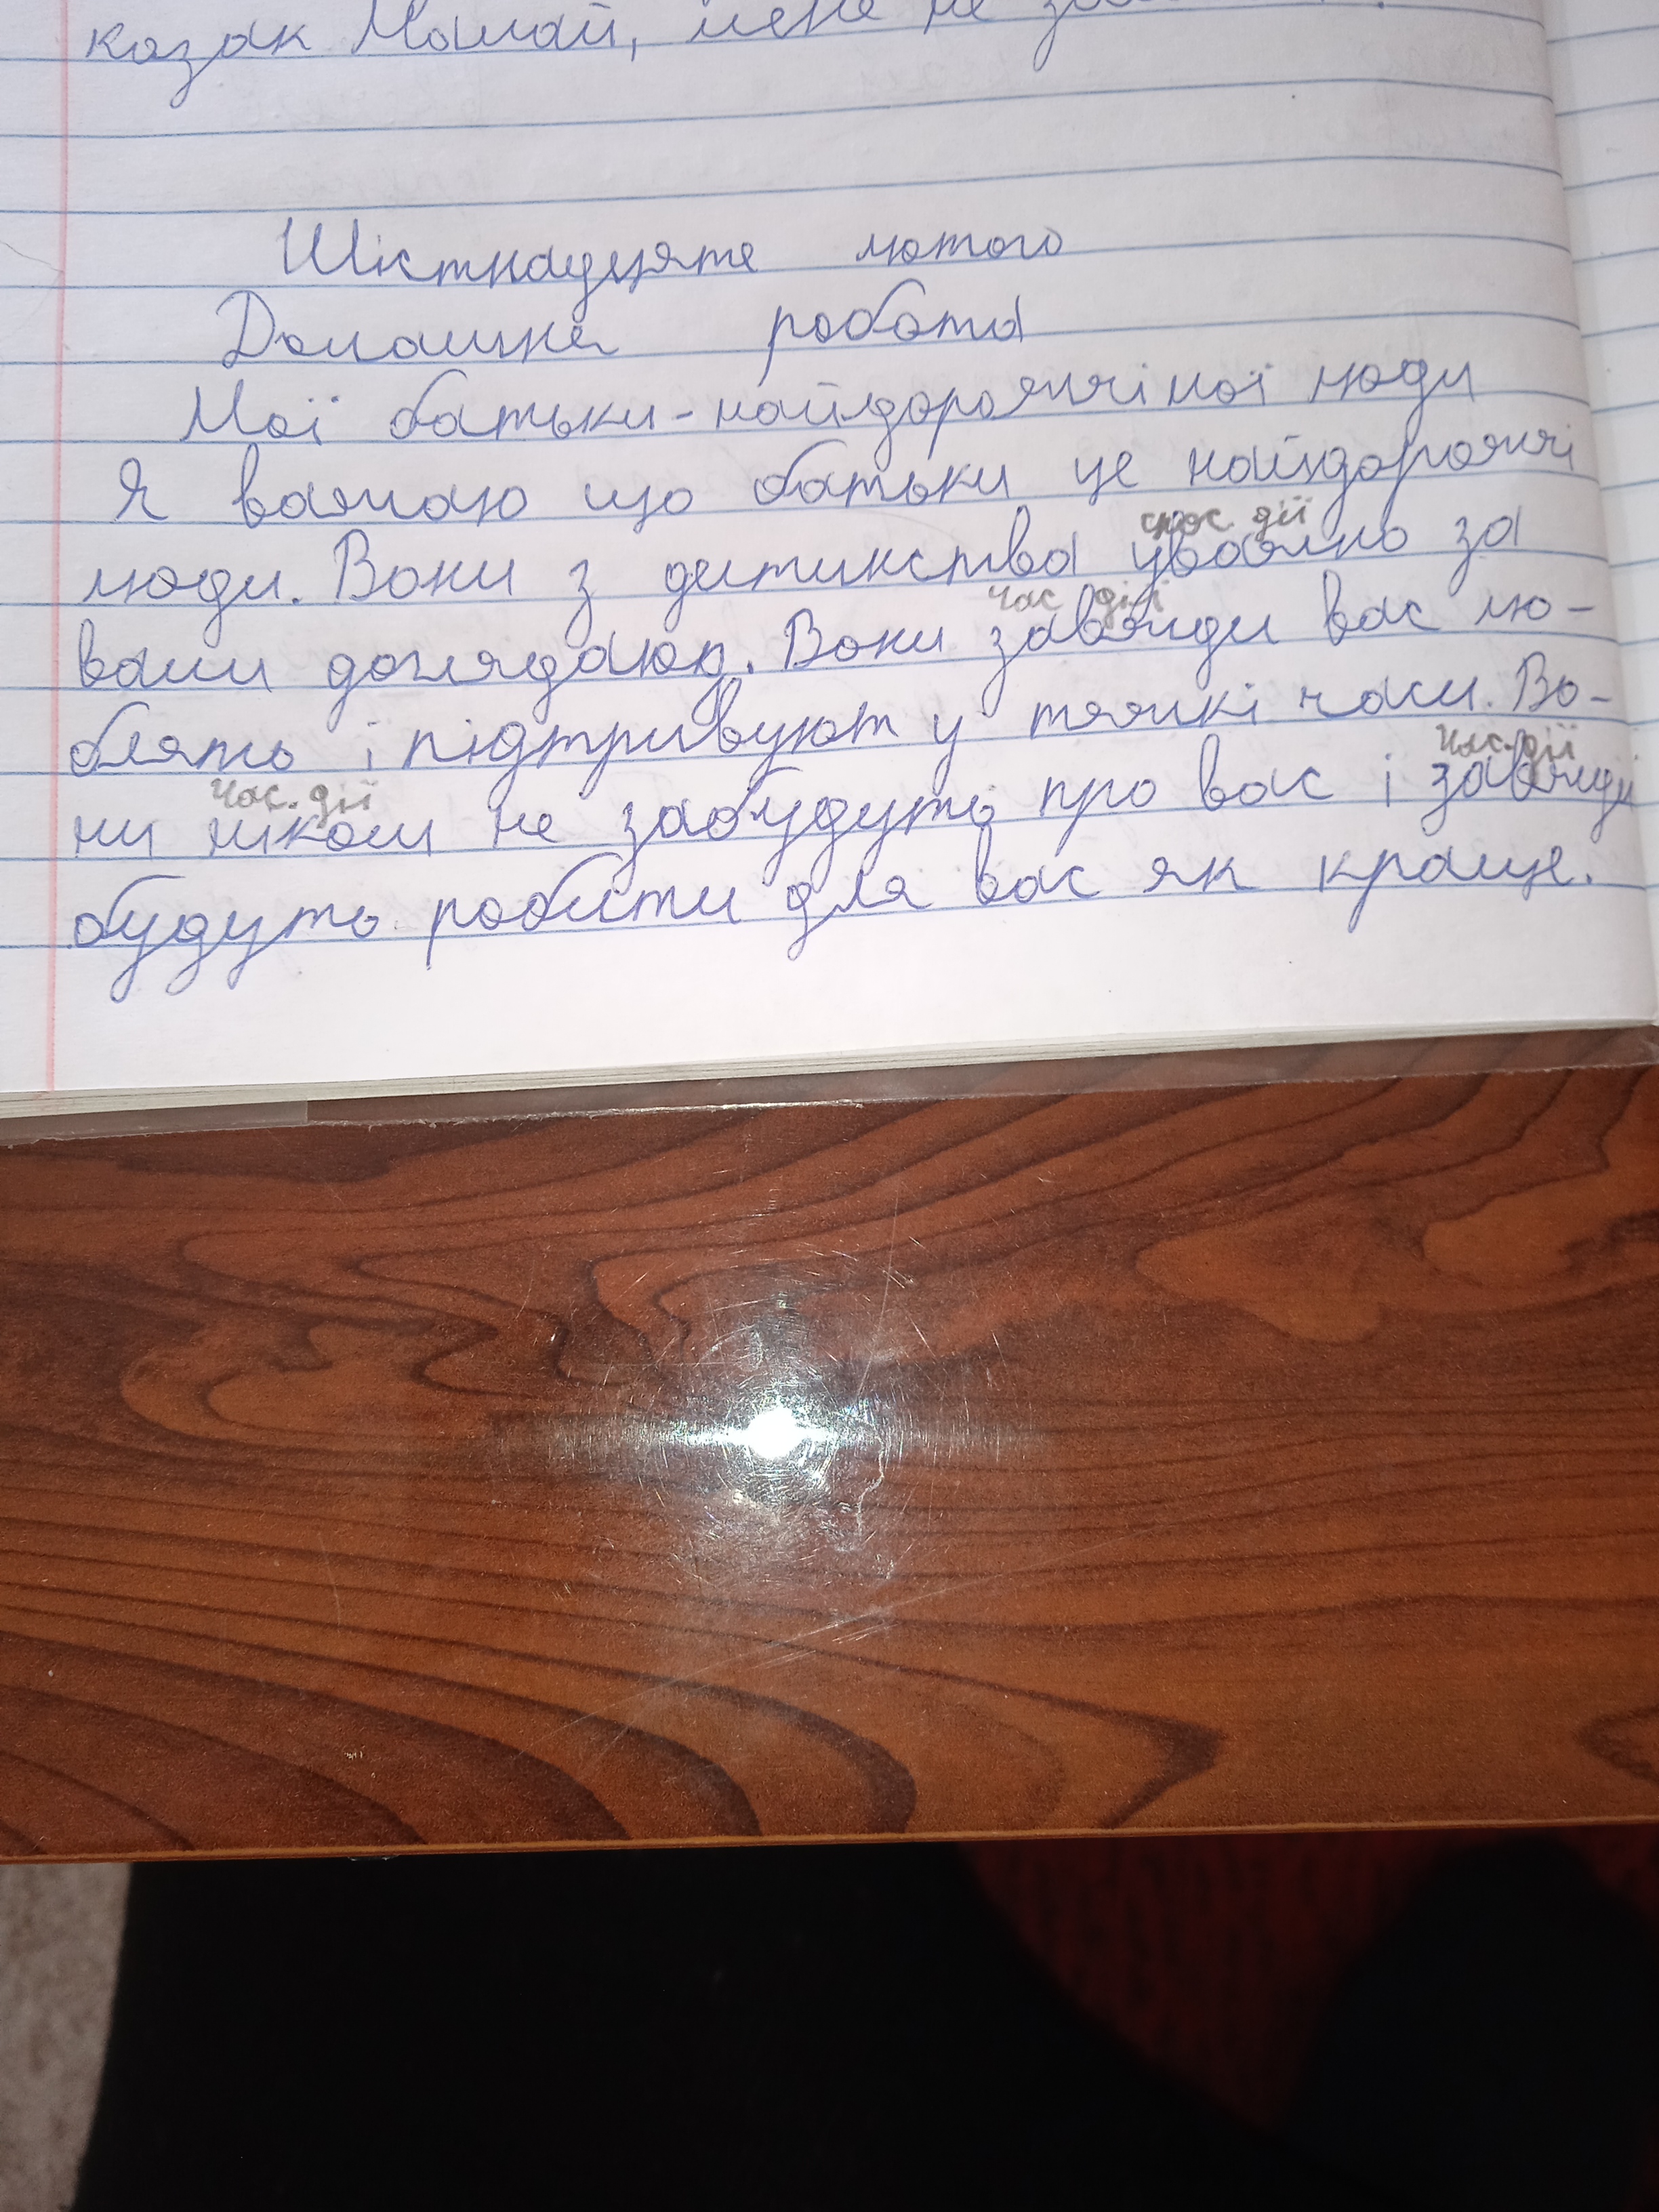 козак Мамай, мене не
Шістнадцяте лютого
Домашня робота
Мої батьки - найдорожчі мої люди
Я вважаю що батьки це найдорожчі
спос. дії
люди. Вони з дитинства уважно за
час дії
вами доглядают. Вони завжди вас лю-
блять і підтривуют у тяжкі часи. Во-
час. дії час. дії
ни ніколи не забудуть про вас і завжди
будуть робити для вас як краще.